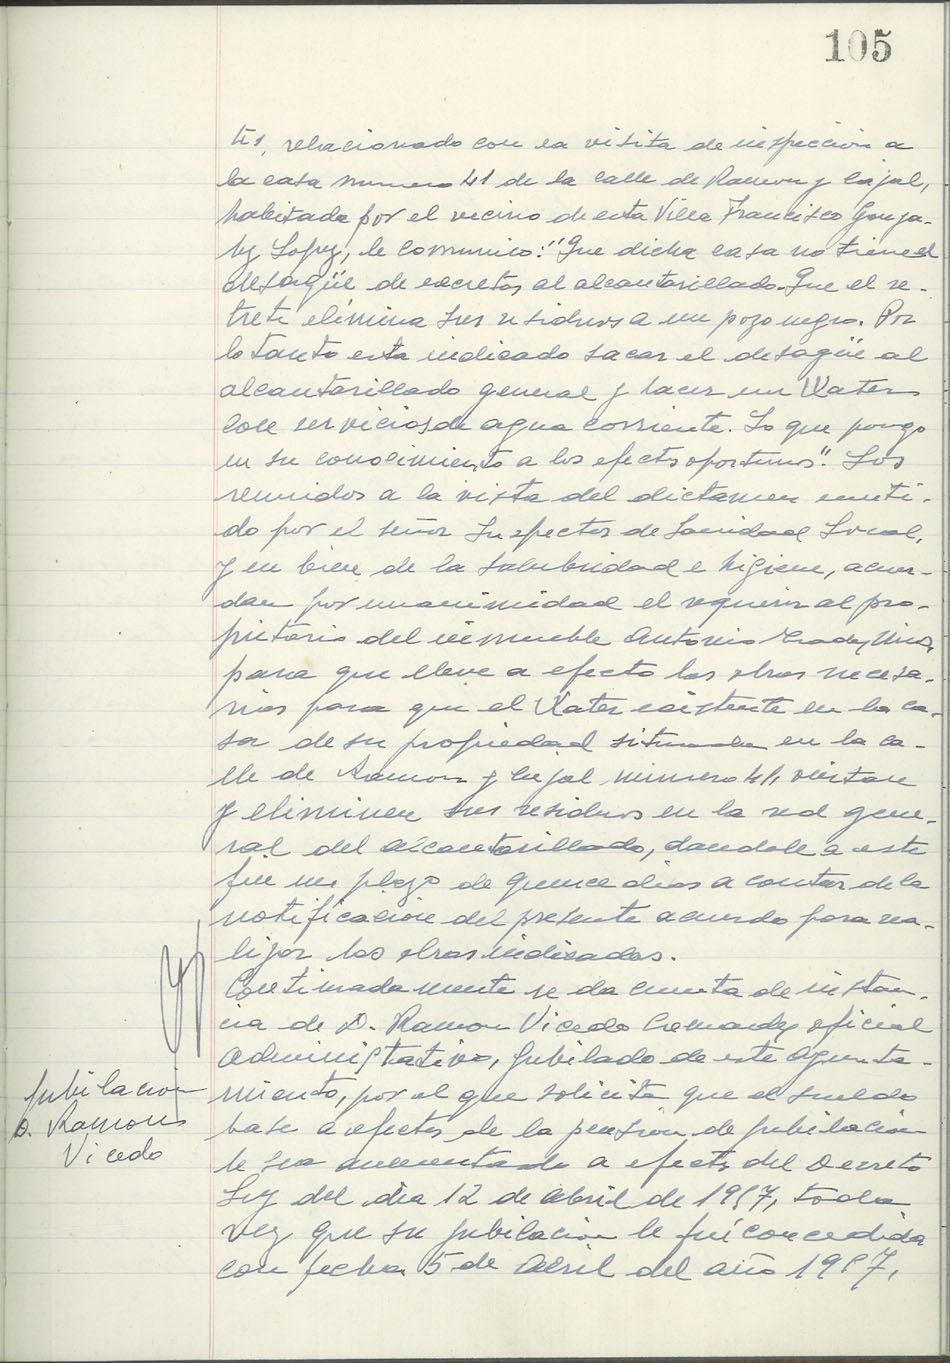 105
tes, relacionado con la visita de inspeccion a
la casa numero 41 de la calle de Ramon y Cajal,
habitada por el vecino de esta Villa Francisco Gonza-
lez Lopez, le comunico: "Que dicha casa no tiene el
desagüe de excretas al alcantarillado. Que el re-
trete elimina sus residuos a un pozo negro. Por
lo tanto esta indicado sacar el desagüe al
alcantarillado general y hacer un Water
con servicios de agua corriente. Lo que pongo
en su conocimiento a los efectos oportunos". Los
reunidos a la vista del dictamen emiti-
do por el señor Inspector de Sanidad Local,
y en bien de la salubridad e higiene, acuer-
dan por unanimidad el requerir al pro-
pietario del inmueble Antonio
para que lleve a efecto las obras necesa-
rias para que el Water existente en la ca-
sa de su propiedad situada en la ca-
lle de Ramon y Cajal numero 41, viertan
y eliminen sus residuos en la red gene-
ral del alcantarillado, dandole a este
fin un plazo de quince dias a contar de la
notificacion del presente acuerdo para rea-
lizar las obras indicadas.
Continuadamente se da cuenta de instan-
cia de D. Ramon Vicedo oficial
Administrativo, jubilado de este Ayunta-
miento, por el que solicita que el sueldo
base a efectos de la pension de jubilacion
le sea aumentado a efectos del Decreto
Ley del dia 12 de Abril de 1957, toda
vez que su jubilacion le fué concedida
con fecha 5 de Abril del año 1957,
Jubilacion
D. Ramon
Vicedo